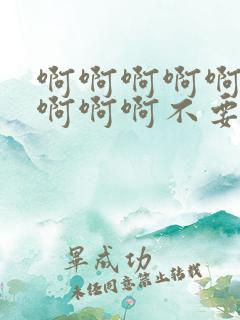 啊啊啊啊啊
啊啊啊不要
毕成功
未经同意禁止转载